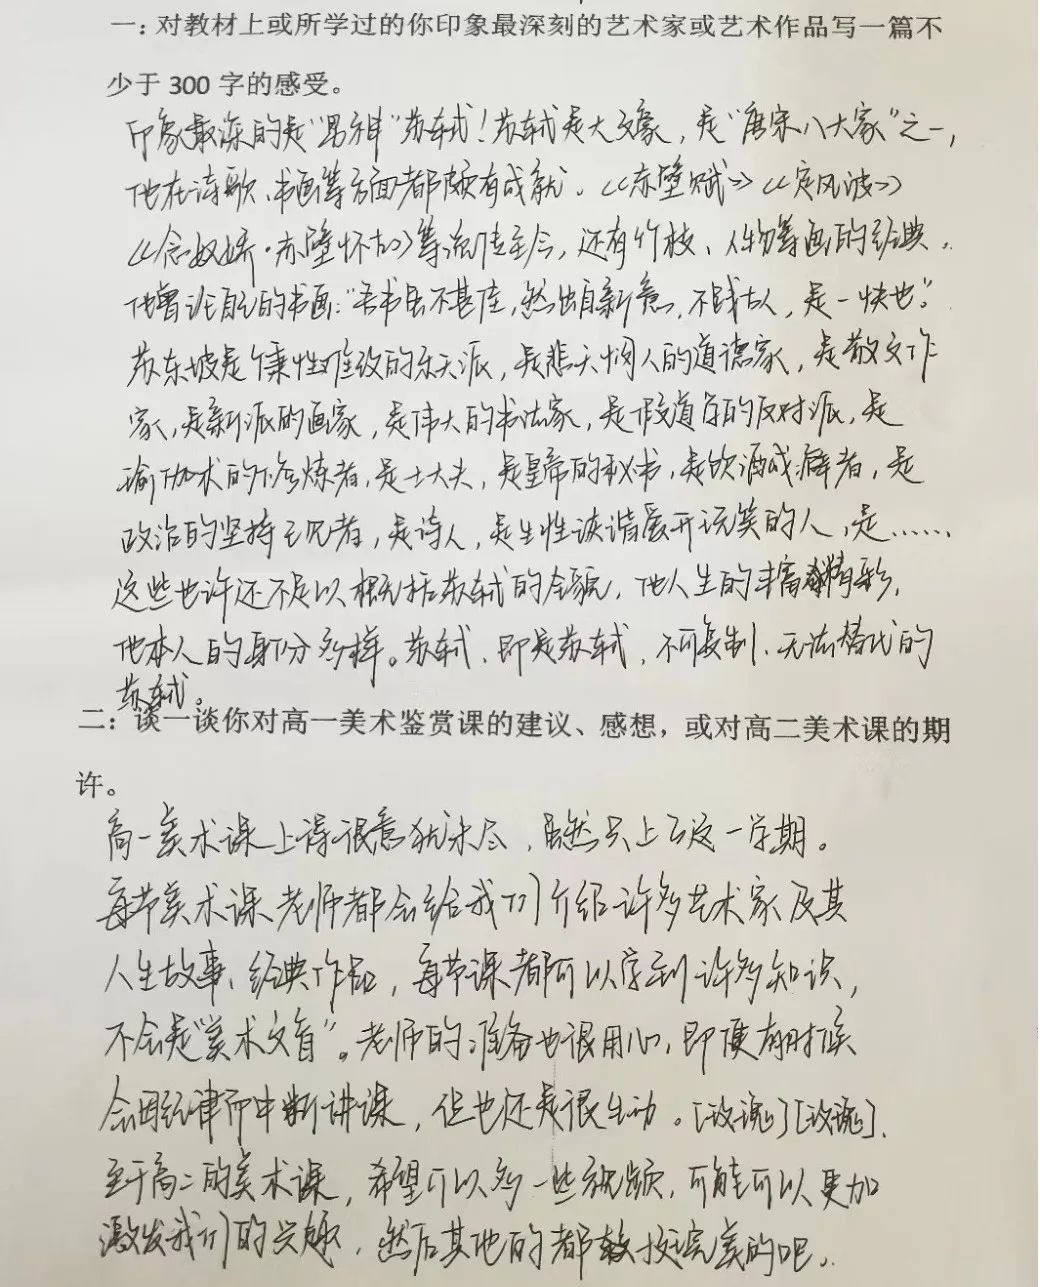 一：对教材上或所学过的你印象最深刻的艺术家或艺术作品写一篇不
少于 300 字的感受。
印象最深的是“男神”苏轼！苏轼是大文豪，是“唐宋八大家”之一，
他在诗歌、书画等方面都颇有成就。《赤壁赋》《定风波》
《念奴娇·赤壁怀古》等流传至今，还有竹枝、人物等画的经典。
他曾评自己的书画：“吾书虽不甚佳，然出自新意，不践古人，是一快也。”
苏东坡是个秉性难改的乐天派，是悲天悯人的道德家，是散文作
家，是新派的画家，是伟大的书法家，是假道学的反对派，是
瑜伽术的修炼者，是士大夫，是皇帝的秘书，是饮酒成癖者，是
政治的坚持己见者，是诗人，是生性诙谐爱开玩笑的人，是……
这些也许还不足以概括苏轼的全貌，他人生的丰富精彩，
他本人的身份多样。苏轼，即是苏轼，不可复制、无法替代的
苏轼。
二：谈一谈你对高一美术鉴赏课的建议、感想，或对高二美术课的期
许。
高一美术课上得很意犹未尽，虽然只上了这一学期。
每节美术课老师都会给我们介绍许多艺术家及其
人生故事、经典作品，每节课都可以学到许多知识，
不会是“美术文盲”。老师的准备也很用心，即便有时候
会因纪律而中断讲课，但也还是很生动。[玫瑰][玫瑰]。
至于高二的美术课，希望可以多一些视频，可能可以更加
激发我们的兴趣，然后其他的都挺完美的吧。